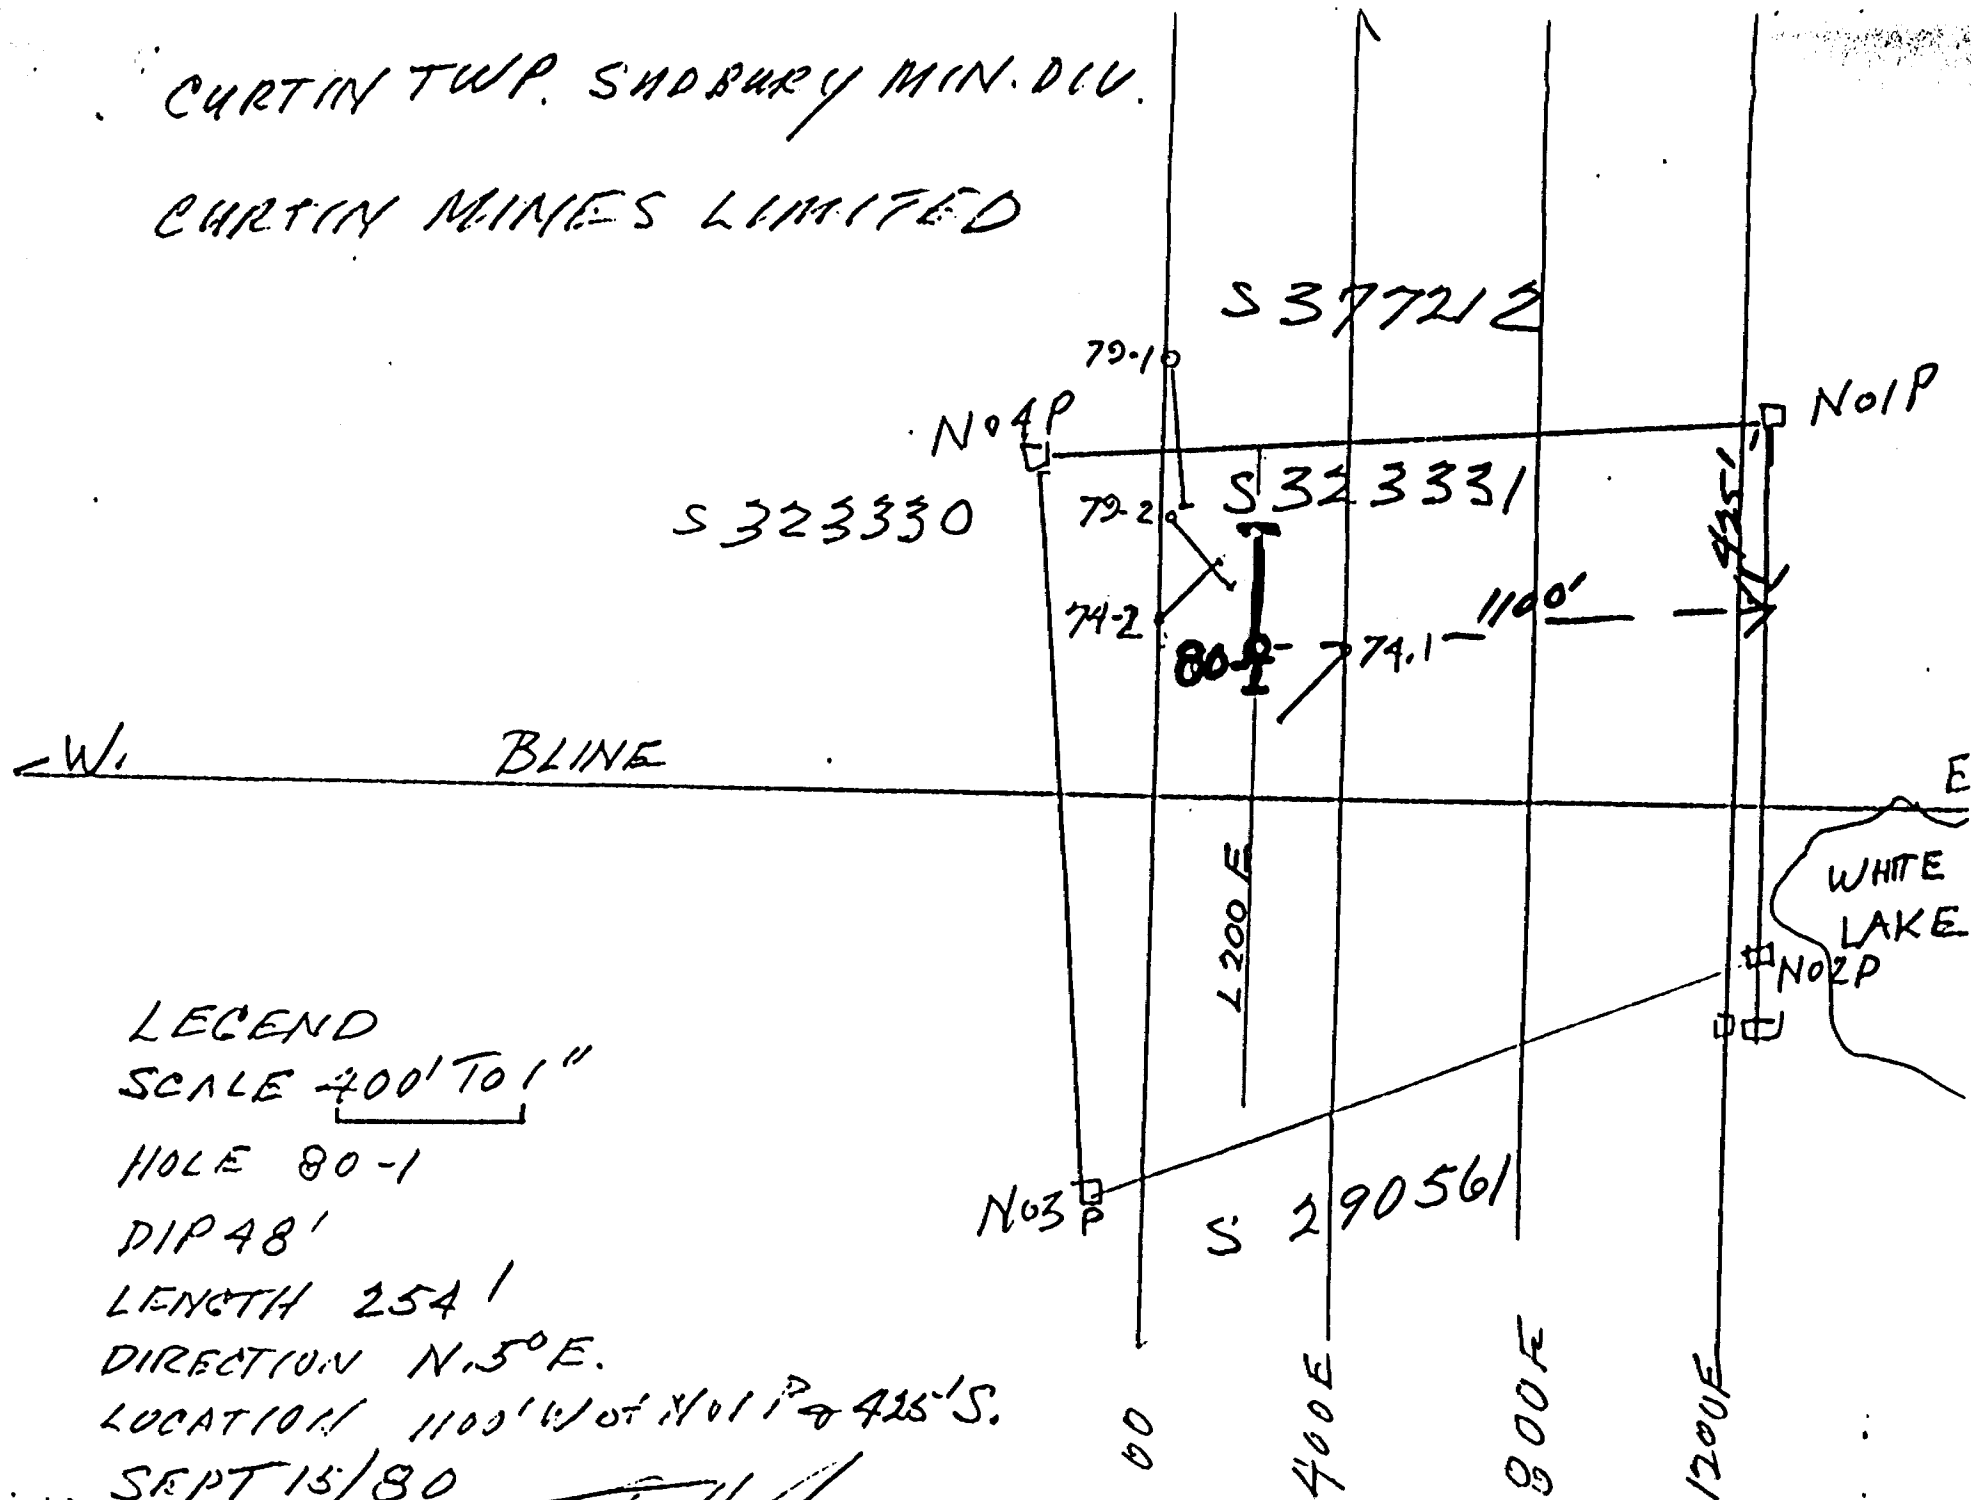 CURTIN TWP. SUDBURY MIN. DIV.
CURTIN MINES LIMITED
S 377212
79-1
No 4 P
No 1 P
S 323331
S 323330
79-2
425'
1100'
74-2
80-1
74.1
W.
BLINE
E
L 200 E
WHITE
LAKE
No 2 P
No 3 P
S 290561
LEGEND
SCALE 400' TO 1"
HOLE 80-1
DIP 48'
LENGTH 254'
DIRECTION N.5° E.
LOCATION 1100' W of No 1 P & 425' S.
SEPT 15/80
00
400 E
800 E
1200 E